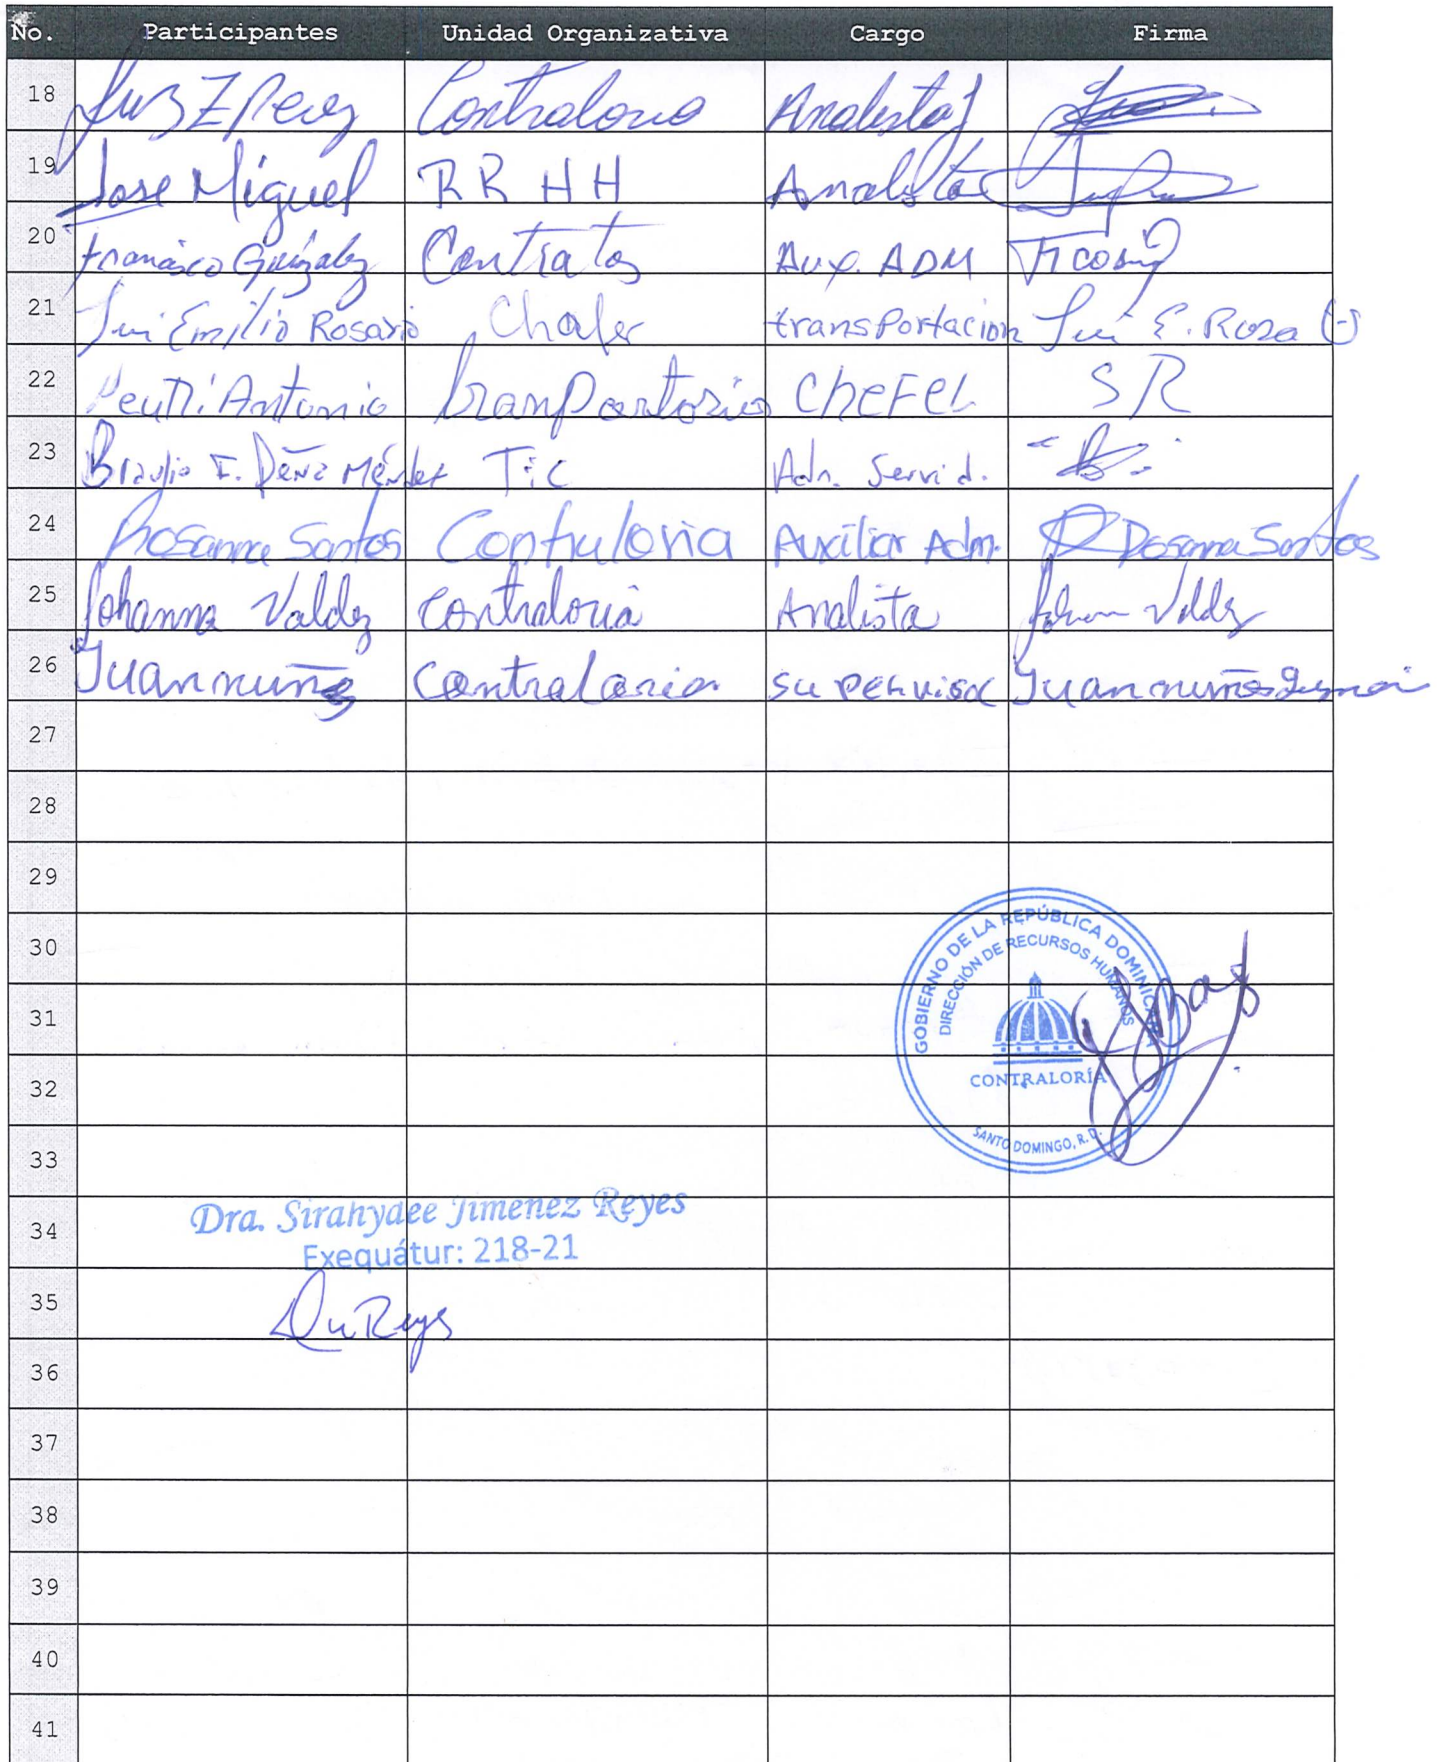 No. Participantes Unidad Organizativa Cargo Firma
18 Luz E Perez Contraloria Analista
19 Jose Miguel RR HH Analista
20 Francisco González Contratos Aux. ADM
21 Emilio Rosario Chofer transportacion E. Rosa
22 Antonio SR
23 Braulio F. Peña Méndez TiC Adn. Servid.
24 Rosanna Santos Contraloria Auxiliar Adm. Rosanna Santos
25 Johanna Valdez Contraloria Analista Valdez
26 Juan nuñez Contraloria Juan nuñez
27
28
29
30
31
32
33
GOBIERNO DE LA REPÚBLICA DOMINICANA
DIRECCIÓN DE RECURSOS HUMANOS
CONTRALORÍA
SANTO DOMINGO, R. D.
34 Dra. Sirahydee Jimenez Reyes
Exequátur: 218-21
35 Reyes
36
37
38
39
40
41